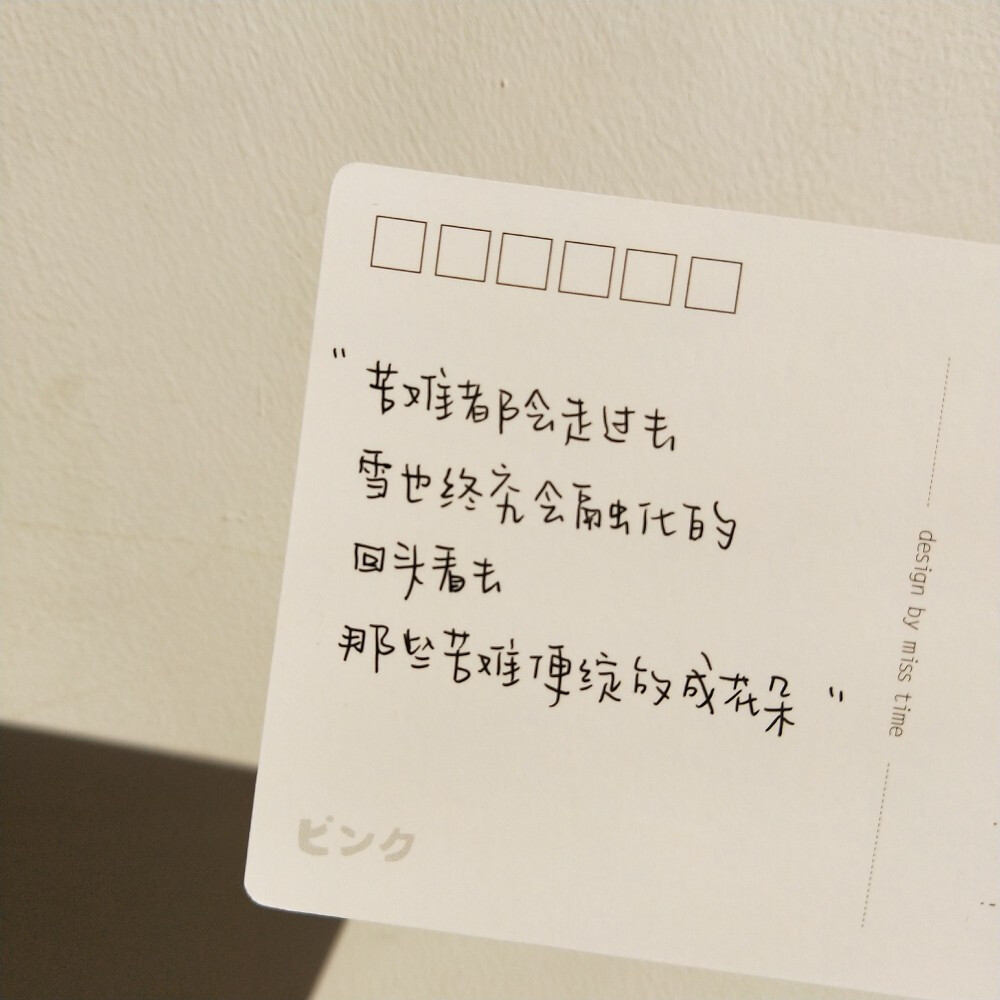 "苦难都会走过去
雪也终究会融化的
回头看去
那些苦难便绽放成花朵"
design by miss time
ピンク